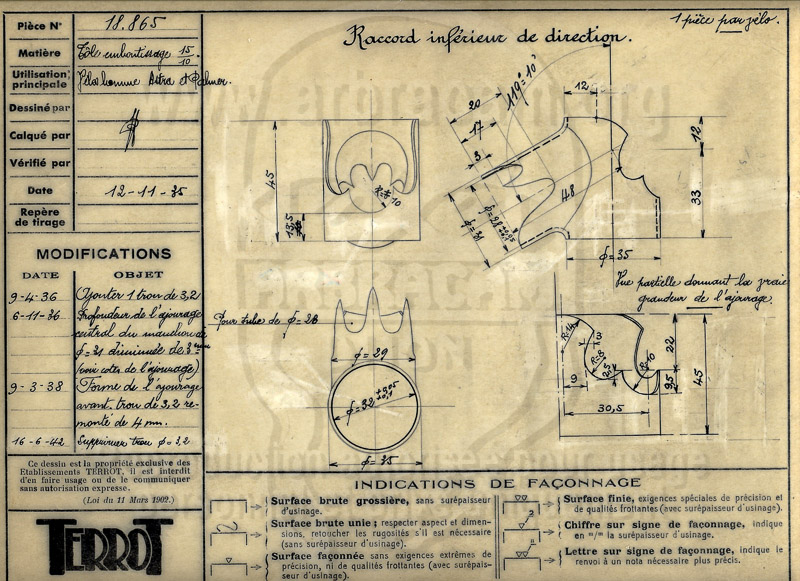 Pièce N° 18.865
Matière Tôle emboutissage 15/10
Utilisation principale Vélos homme Astra et Palmer.
Dessiné par
Calqué par
Vérifié par
Date 12-11-35
Repère de tirage
MODIFICATIONS
DATE OBJET
9-4-36 Ajouter 1 trou de 3,2
6-11-36 Profondeur de l'ajourage
central du manchon de
φ=31 diminuée de 3
(voir cotes de l'ajourage)
9-3-38 Forme de l'ajourage
avant. trou de 3,2 re-
monté de 4 mm.
16-6-42 Supprimer trou φ=3,2
Ce dessin est la propriété exclusive des
Etablissements TERROT, il est interdit
d'en faire usage ou de le communiquer
sans autorisation expresse.
(Loi du 11 Mars 1902.)
TERROT
Raccord inférieur de direction.
1 pièce par vélo.
45
13,5
10
20
17
3
119° 10'
12
12
33
48
φ=31
φ=28
φ=35
Vue partielle donnant la vraie
grandeur de l'ajourage.
Pour tube de φ=28
φ=29
φ=32
φ=35
R=14
3
R=8
R=10
9
2,5
30,5
22
9,5
45
INDICATIONS DE FAÇONNAGE
Surface brute grossière, sans surépaisseur
d'usinage.
Surface brute unie ; respecter aspect et dimen-
sions, retoucher les rugosités s'il est nécessaire
(sans surépaisseur d'usinage).
Surface façonnée sans exigences extrêmes de
précision, ni de qualités frottantes (avec surépais-
seur d'usinage).
Surface finie, exigences spéciales de précision et
de qualités frottantes (avec surépaisseur d'usinage).
Chiffre sur signe de façonnage, indique
en m/m la surépaisseur d'usinage.
Lettre sur signe de façonnage, indique le
renvoi à un nota nécessaire plus précis.